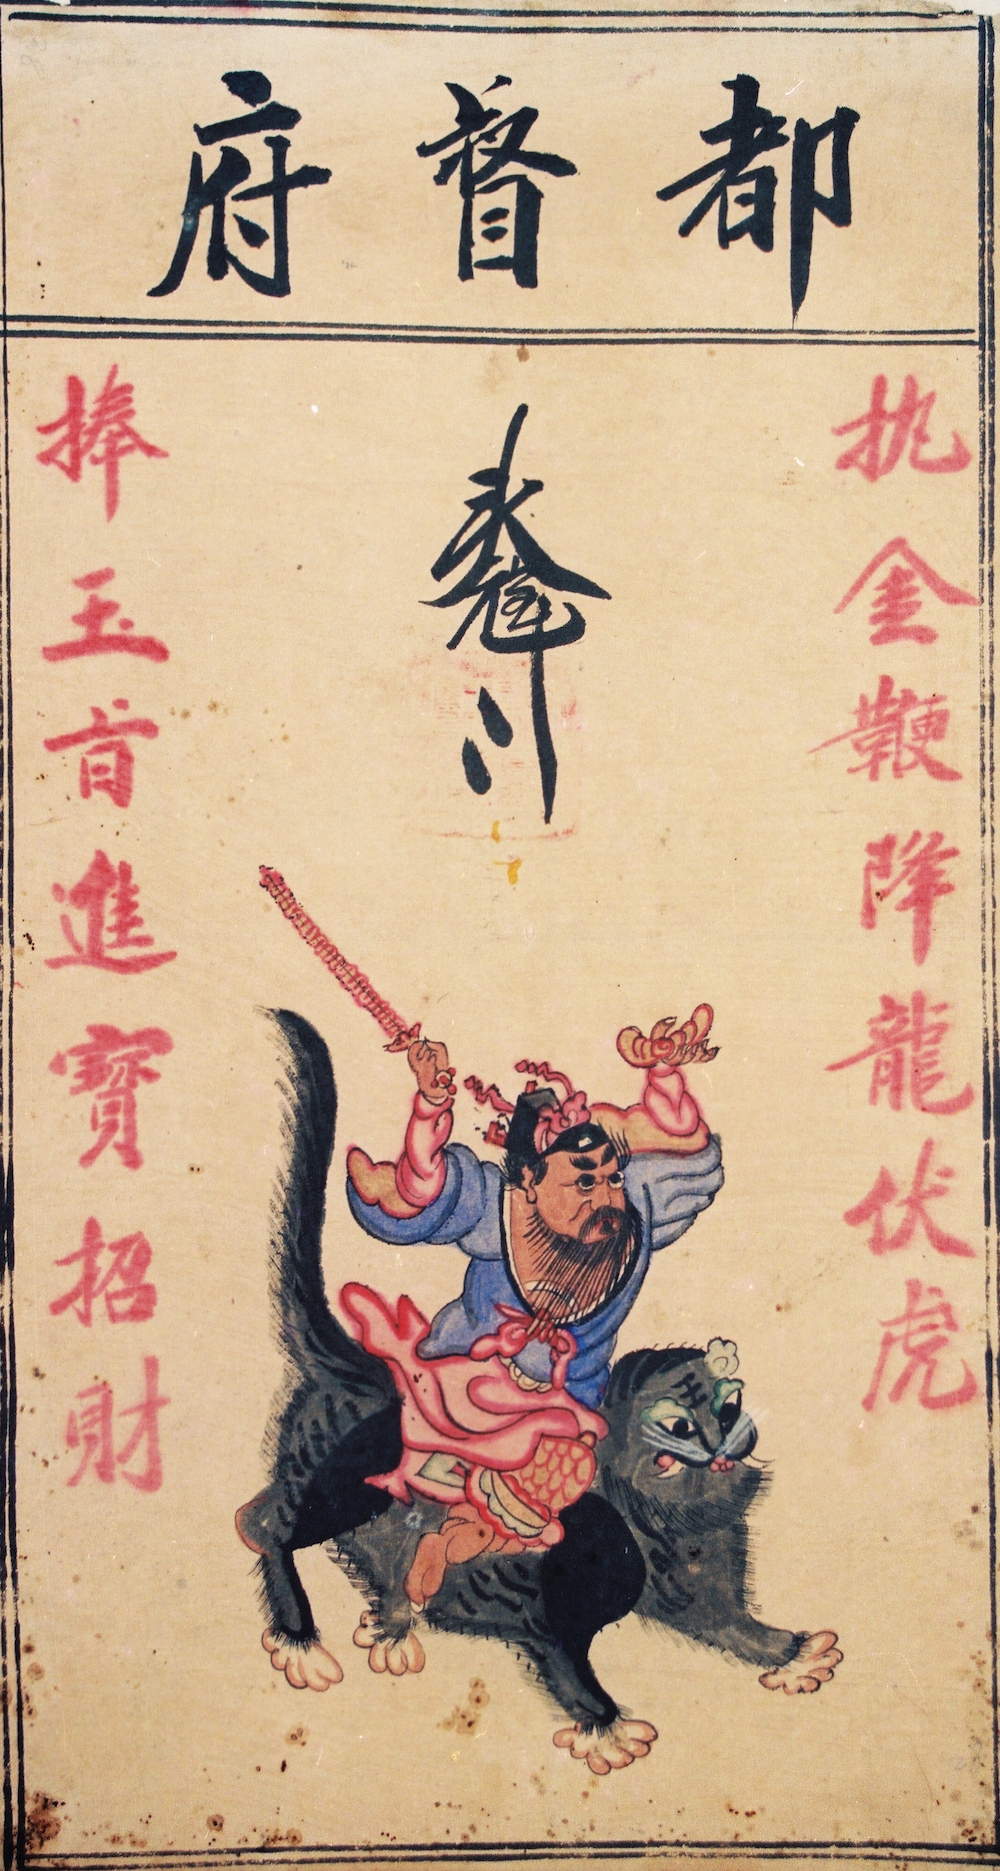 都督府
执金鞭降龍伏虎
捧玉旨進寶招財